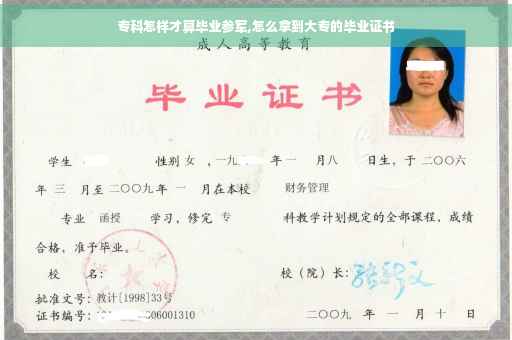 专科怎样才算毕业参军,怎么拿到大专的毕业证书
成人高等教育
毕业证书
学生 性别 女 , 一九 年 一 月 八 日生, 于 二〇〇六
年 三 月至 二〇〇九 年 一 月在本校 财务管理
专业 函授 学习, 修完 专 科教学计划规定的全部课程, 成绩
合格, 准予毕业。
校 名: 校(院)长:
批准文号: 教计[1998]33号
证书编号: 06001310 二〇〇九 年 一 月 十 日